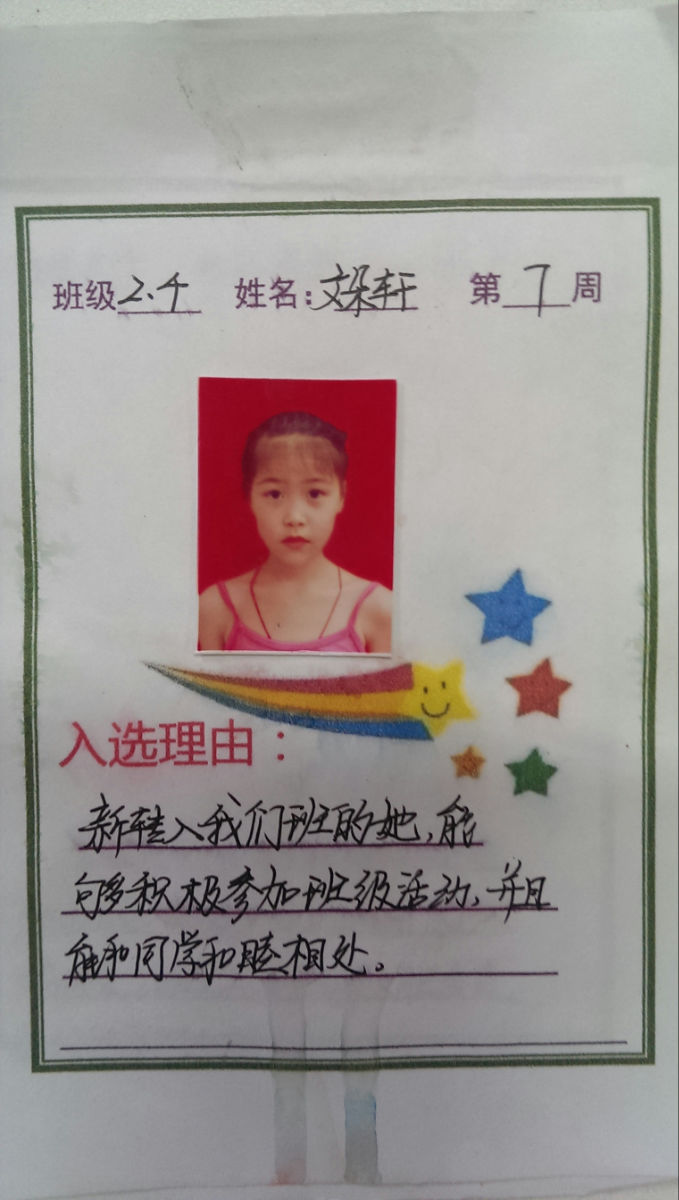 班级2.4 姓名:文朵轩 第7周
入选理由:
新转入我们班的她,能
够多积极参加班级活动,并且
能和同学和睦相处。